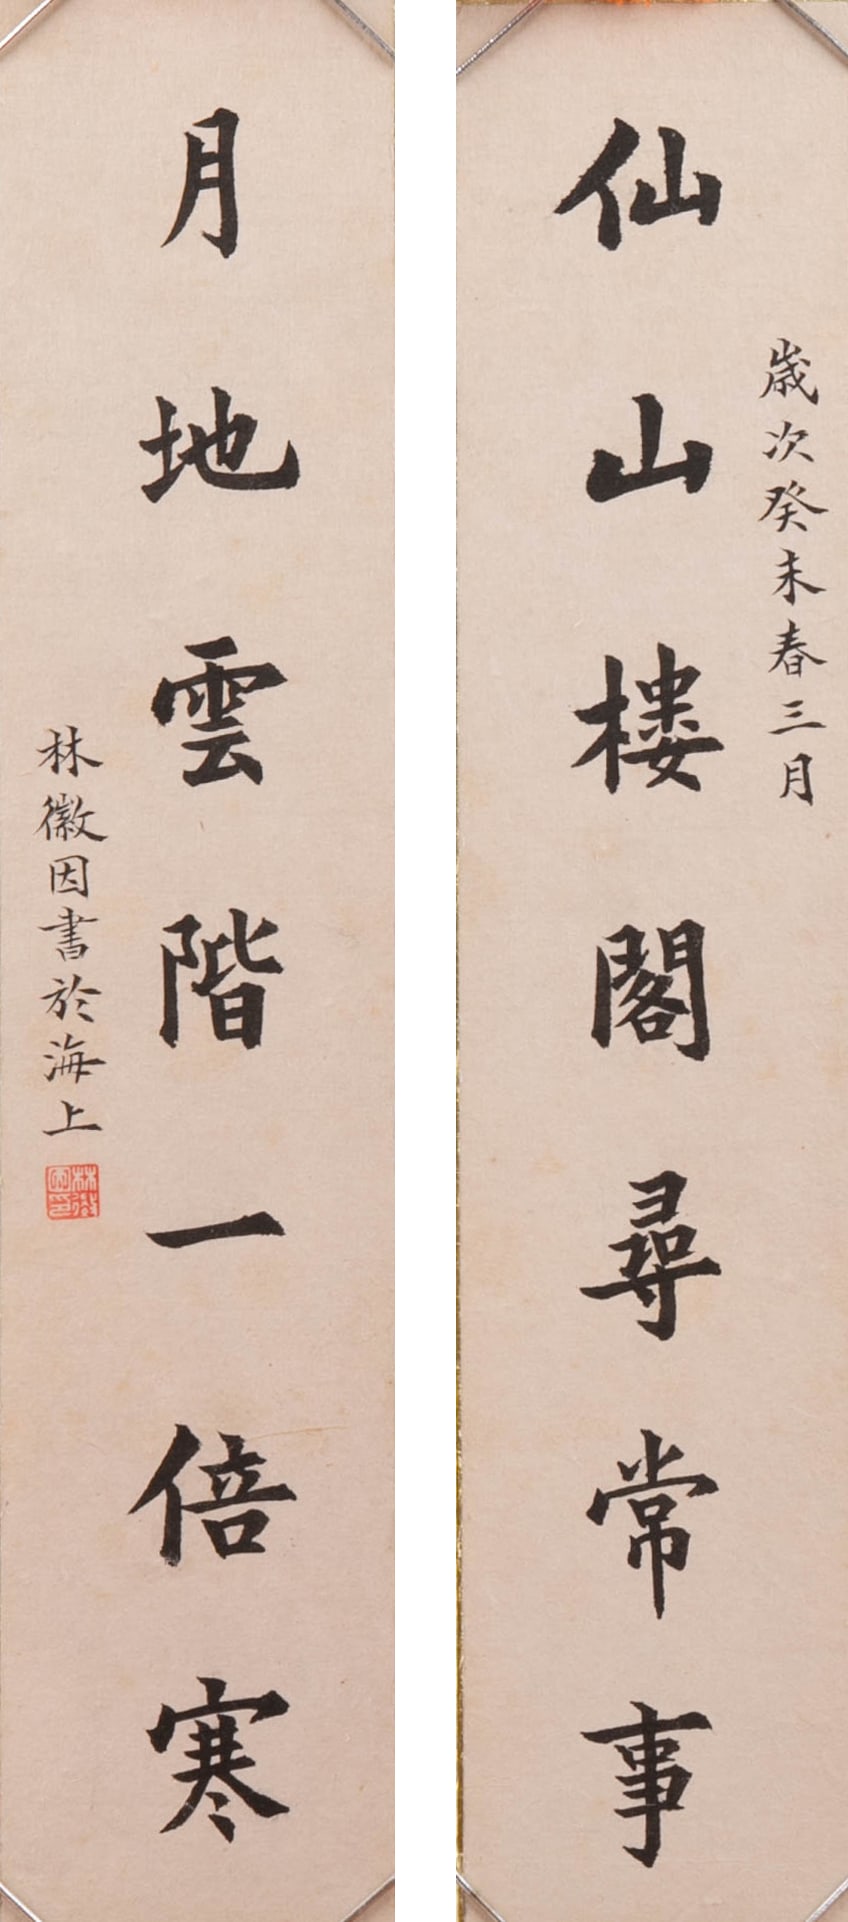 歲次癸未春三月
仙山樓閣尋常事
月地雲階一倍寒
林徽因書於海上